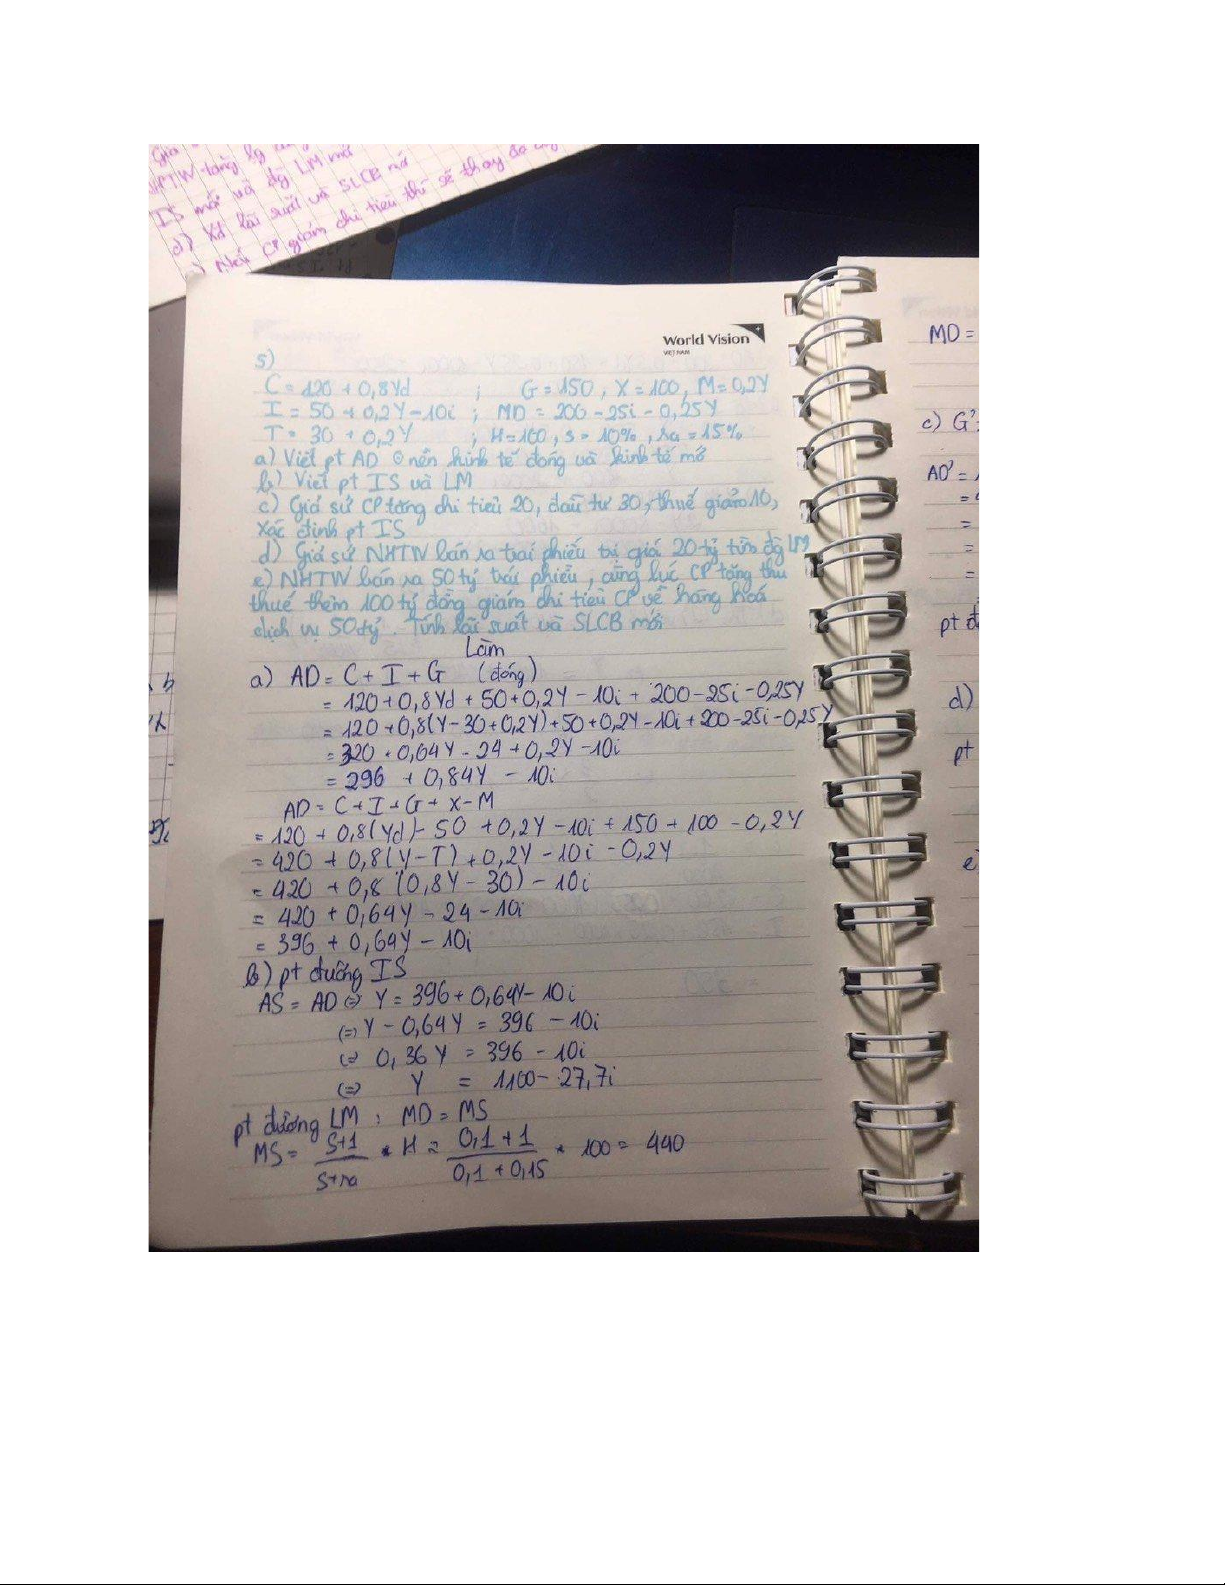 NHTW tăng lg
IS mới và đg LM mới
d) Xđ lãi suất và SLCB mới
Nếu CP giảm chi tiêu thì sẽ thay đổi
World Vision
VIET NAM
5)
C = 120 + 0,8Yd ; G = 150, X = 100, M = 0,2Y
I = 50 + 0,2Y - 10i ; MD = 200 - 25i - 0,25Y
T = 30 + 0,2Y ; H = 100, s = 10%, ra = 15%
a) Viết pt AD nền kinh tế đóng và kinh tế mở
b) Viết pt IS và LM
c) Giả sử CP tăng chi tiêu 20, đầu tư 30, thuế giảm 10,
xác định pt IS
d) Giả sử NHTW bán ra trái phiếu trị giá 20 tỷ tìm đg LM
e) NHTW bán ra 50 tỷ trái phiếu, cùng lúc CP tăng thu
thuế thêm 100 tỷ đồng giảm chi tiêu CP về hàng hoá
dịch vụ 50 tỷ. Tính lãi suất và SLCB mới
Làm
a) AD = C + I + G (đóng)
= 120 + 0,8Yd + 50 + 0,2Y - 10i + 200 - 25i - 0,25Y
= 120 + 0,8(Y - 30 + 0,2Y) + 50 + 0,2Y - 10i + 200 - 25i - 0,25Y
= 320 + 0,64Y - 24 + 0,2Y - 10i
= 296 + 0,84Y - 10i
AD = C + I + G + X - M
= 120 + 0,8(Yd) - 50 + 0,2Y - 10i + 150 + 100 - 0,2Y
= 420 + 0,8(Y - T) + 0,2Y - 10i - 0,2Y
= 420 + 0,8 (0,8Y - 30) - 10i
= 420 + 0,64Y - 24 - 10i
= 396 + 0,64Y - 10i
b) pt đường IS
AS = AD (=) Y = 396 + 0,64Y - 10i
(=) Y - 0,64Y = 396 - 10i
(=) 0,36Y = 396 - 10i
(=) Y = 1100 - 27,7i
pt đường LM : MD = MS
MS = s+1 / s+ra * H = 0,1 + 1 / 0,1 + 0,15 * 100 = 440
MD =
c) G'
AD' =
=
=
=
=
pt
d)
pt
e